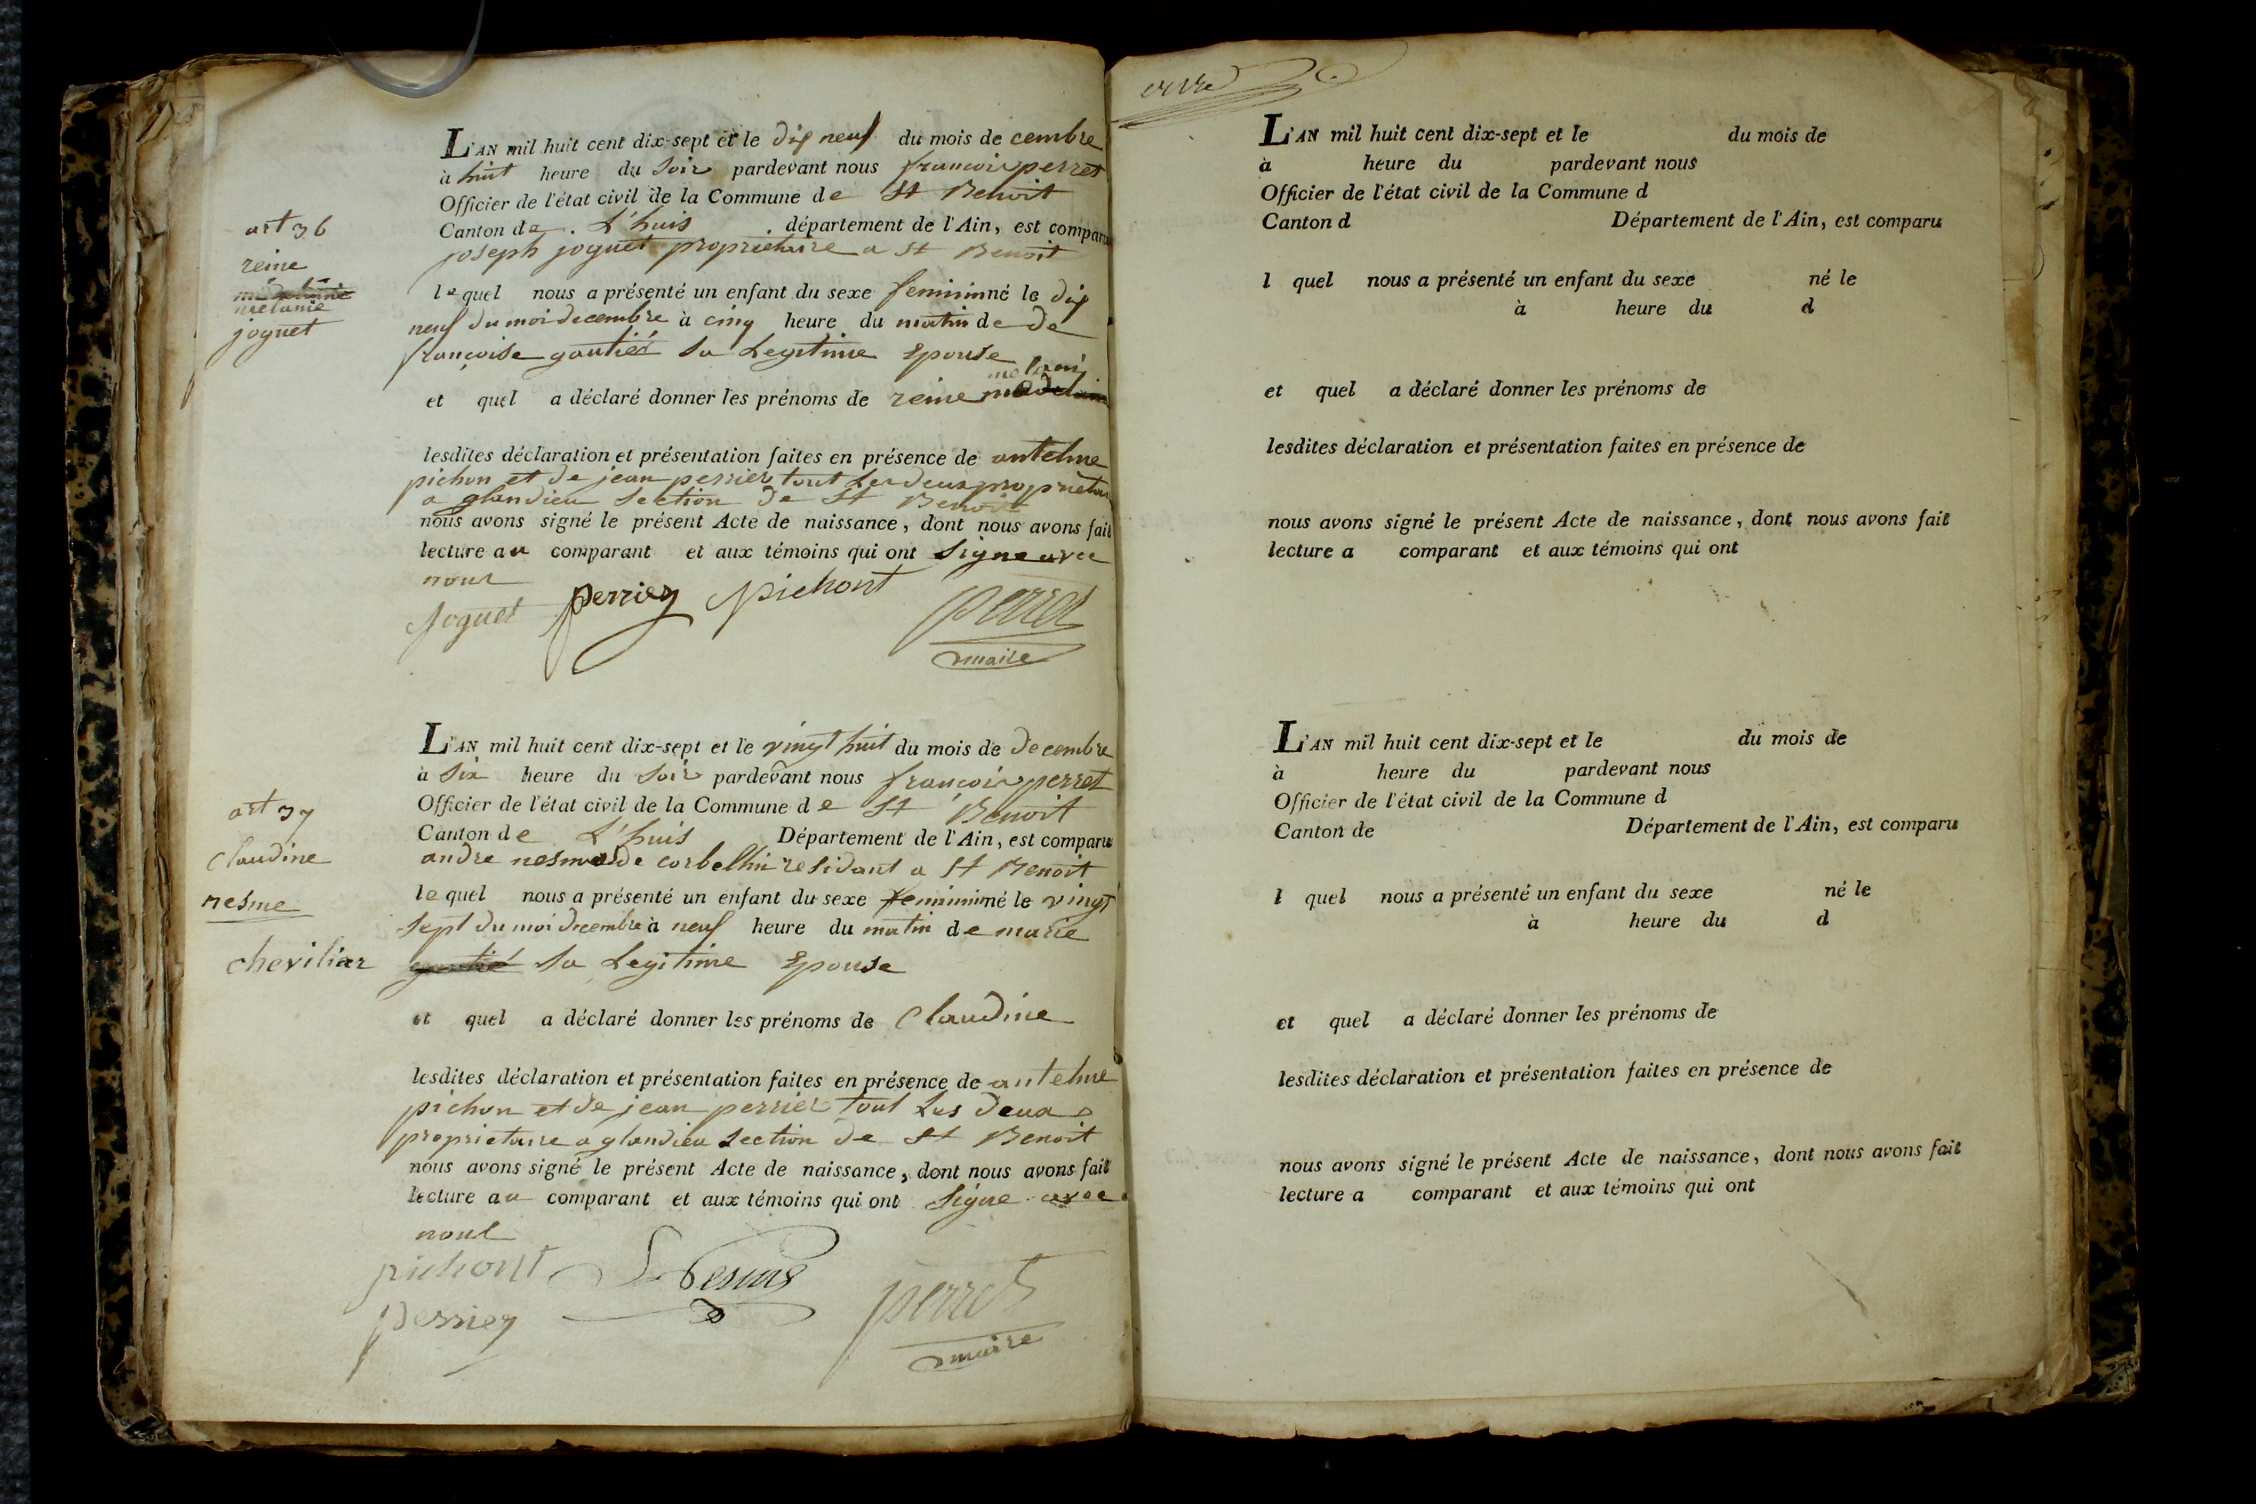 art 36
reine
melanie
joguet
L'AN mil huit cent dix-sept et le dix neuf du mois de cembre
à huit heure du soir pardevant nous françois perret
Officier de l'état civil de la Commune de St Benoit
Canton de L'huis département de l'Ain, est comparu
joseph joguet proprietaire a St Benoit
lequel nous a présenté un enfant du sexe feminin né le dix
neuf du moi decembre à cinq heure du matin de De
françoise gautier sa Legitime Epouse
melani
et quel a déclaré donner les prénoms de reine madelaine
lesdites déclaration et présentation faites en présence de antelme
pichon et de jean perrier tout Les deux proprietaire
a glandieu section de St Benoit
nous avons signé le présent Acte de naissance, dont nous avons fait
lecture au comparant et aux témoins qui ont signe avec
nous
joguet perrier pichont perret
maire
art 37
Claudine
nesme
chevilier
L'AN mil huit cent dix-sept et le vingt huit du mois de Decembre
à six heure du soir pardevant nous françois perret
Officier de l'état civil de la Commune de St Benoit
Canton de L'huis Département de l'Ain, est comparu
andre nesme de corbellin residant a St Benoit
lequel nous a présenté un enfant du sexe feminin né le vingt
sept du moi decembre à neuf heure du matin de marie
gautié sa Legitime Epouse
et quel a déclaré donner les prénoms de Claudine
lesdites déclaration et présentation faites en présence de antelme
pichon et de jean perrier tout Les deux
proprietaire a glandieu section de St Benoit
nous avons signé le présent Acte de naissance, dont nous avons fait
lecture au comparant et aux témoins qui ont signe avec
nous
pichont Nesme perret
perrier maire
L'AN mil huit cent dix-sept et le du mois de
à heure du pardevant nous
Officier de l'état civil de la Commune d
Canton d Département de l'Ain, est comparu
l quel nous a présenté un enfant du sexe né le
à heure du d
et quel a déclaré donner les prénoms de
lesdites déclaration et présentation faites en présence de
nous avons signé le présent Acte de naissance, dont nous avons fait
lecture a comparant et aux témoins qui ont
L'AN mil huit cent dix-sept et le du mois de
à heure du pardevant nous
Officier de l'état civil de la Commune d
Canton de Département de l'Ain, est comparu
l quel nous a présenté un enfant du sexe né le
à heure du d
et quel a déclaré donner les prénoms de
lesdites déclaration et présentation faites en présence de
nous avons signé le présent Acte de naissance, dont nous avons fait
lecture a comparant et aux témoins qui ont